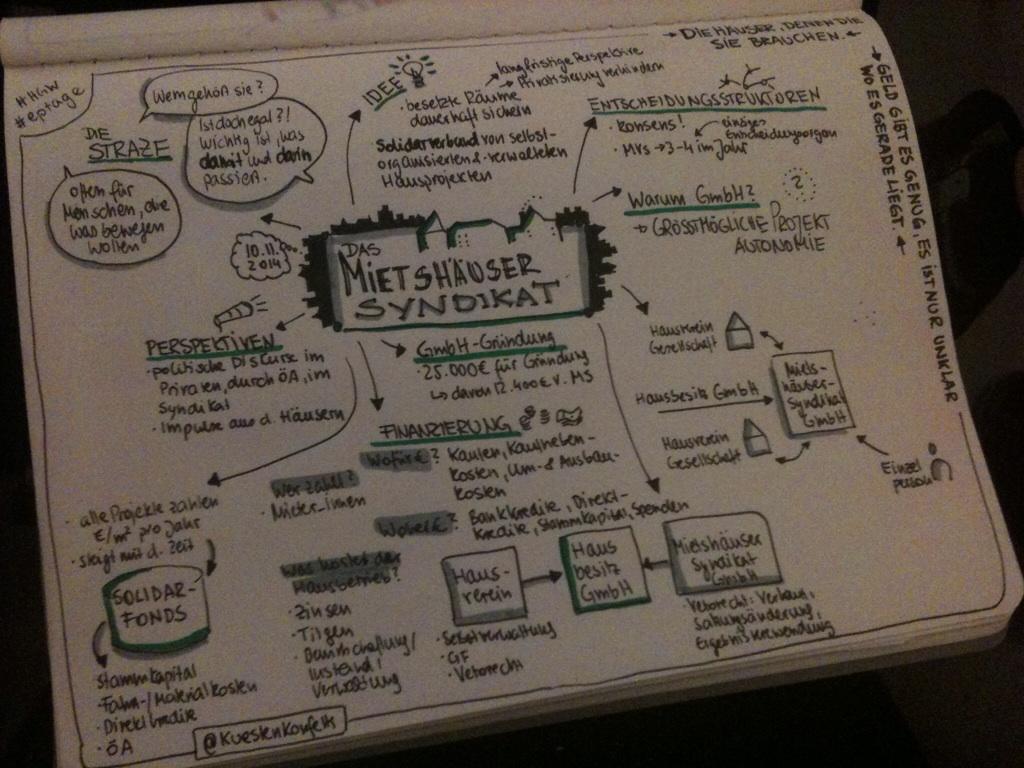 #HGW
#eptage
DIE
STRAZE
Wem gehört sie?
Ist doch egal?!
Wichtig ist, was
damit und darin
passiert.
offen für
Menschen, die
was bewegen
wollen
10.11.
2014
IDEE
langfristige Perspektive
Privatisierung verhindern
• besetzte Räume
dauerhaft sichern
Solidarverbund von selbst-
organisierten & -verwalteten
Hausprojekten
→ DIE HÄUSER, DENEN DIE
SIE BRAUCHEN. ←
→ GELD GIBT ES GENUG, ES IST NUR UNKLAR
WO ES GERADE LIEGT. ←
ENTSCHEIDUNGSSTRUKTUREN
• Konsens!
einziges
Entscheidungsorgan
• MVs → 3-4 im Jahr
Warum GmbH?
?
→ GRÖSSTMÖGLICHE PROJEKT
AUTONOMIE
DAS
MIETSHÄUSER
SYNDIKAT
PERSPEKTIVEN
• politische Diskurse im
Privaten, durch ÖA, im
Syndikat
• Impulse aus d. Häusern
GmbH-Gründung
• 25.000€ für Gründung
↳ davon 12.400€ v. MS
FINANZIERUNG
Wofür €?
Kaufen, Kaufneben-
kosten, Um- & Ausbau-
kosten
Wer zahlt?
Mieter-innen
Woher €?
Bankkredite, Direkt-
kredite, Stammkapital, Spenden
Was kostet der
Hausbetrieb?
• Zinsen
• Tilgen
• Bewirtschaftung/
Instand/
Verwaltung
Hausverein
Gesellschaft
Hausbesitz GmbH
Hausverein
Gesellschaft
Miets-
häuser-
Syndikat
GmbH
Einzel
person
• alle Projekte zahlen
€/m² pro Jahr
• steigt mit d. Zeit
SOLIDAR-
FONDS
Stammkapital
• Fahrt-/Materialkosten
• Direktkredite
• ÖA
Haus-
verein
• Selbstverwaltung
• GF
• Vetorecht
Haus
besitz
GmbH
Mietshäuser
Syndikat
GmbH
• Vetorecht: Verkauf,
Satzungsänderung,
Ergebnisverwendung
@Kuestenkonfetti